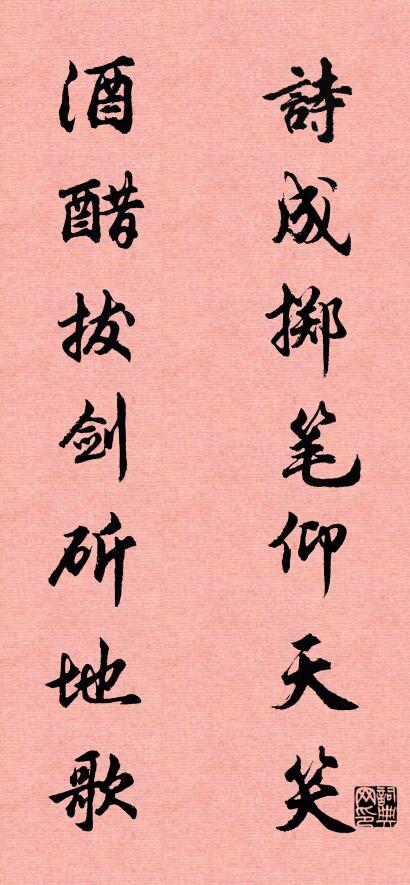 詩成掷笔仰天笑
酒醋拔剑斫地歌
詞典网印